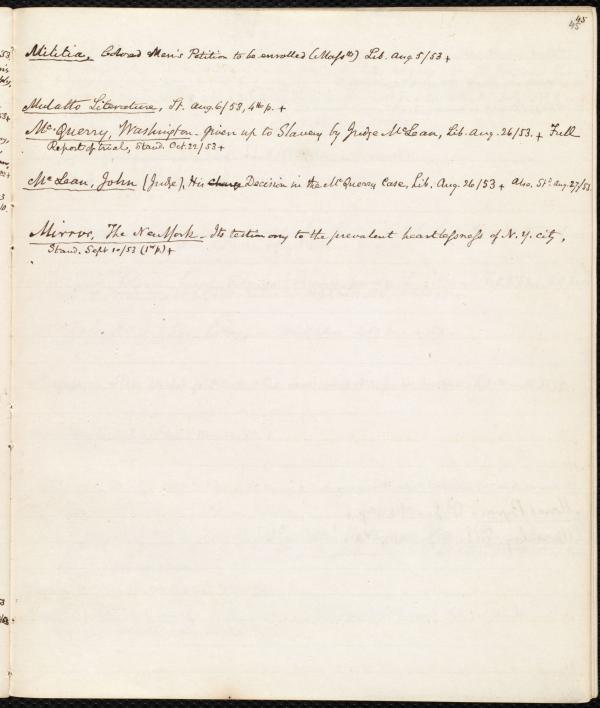 45
45
Militia, Colored Men's Petition to be enrolled (Massts) Lib. Aug 5/53 +
Mulatto Literature, St. Aug. 6/53, 4th p. +
McQuerry, Washington - given up to Slavery by Judge McLean, Lib. Aug. 26/53. + Full
Report of trial, Stand. Oct. 22/53 +
McLean, John (Judge), His charge Decision in the McQuerry Case, Lib. Aug. 26/53 + Also, Std. Aug. 27/53.
Mirror, The New York - Its testimony to the prevalent heartlessness of N. Y. city,
Stand. Sept 10/53 (1st p.) +